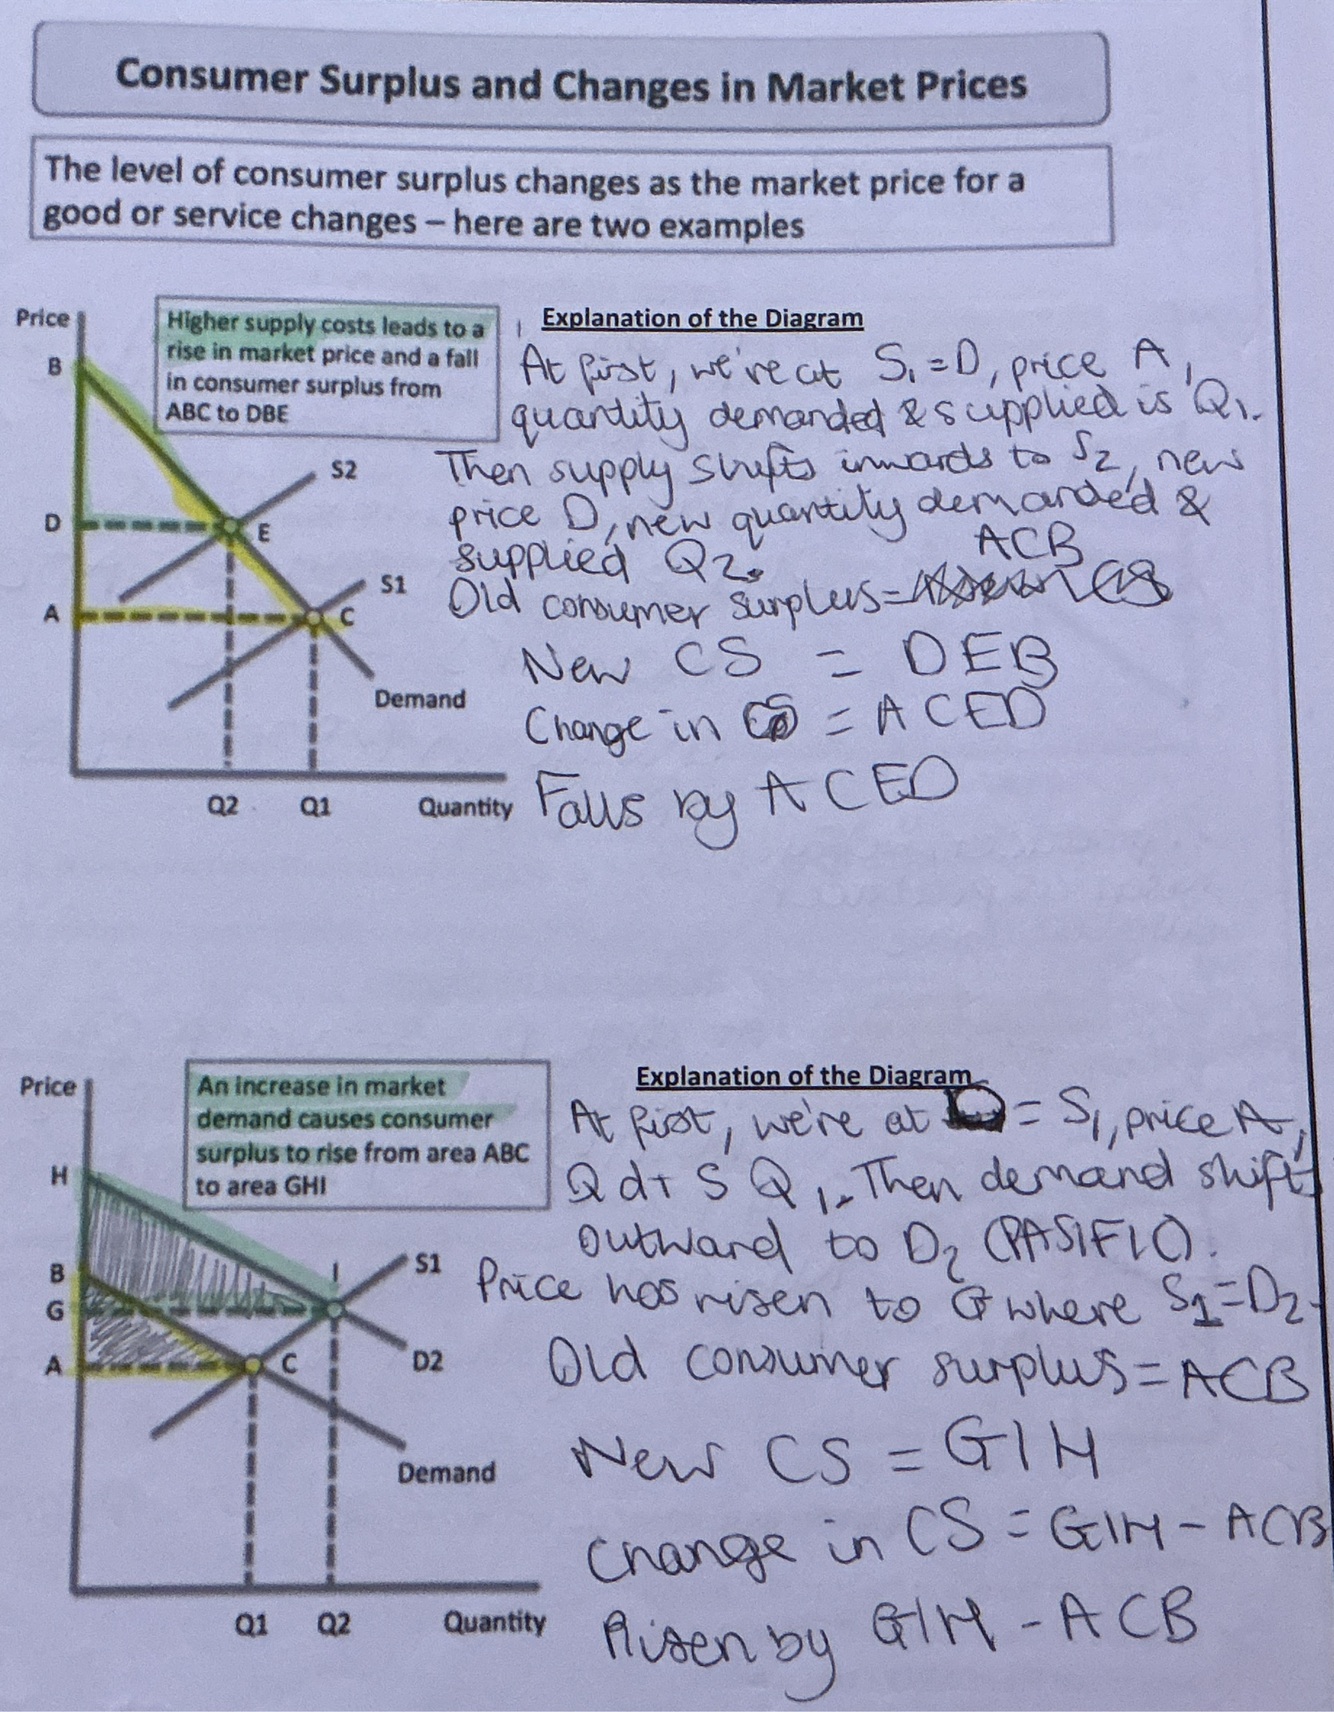 Consumer Surplus and Changes in Market Prices
The level of consumer surplus changes as the market price for a
good or service changes – here are two examples
Price
B
D
A
Higher supply costs leads to a
rise in market price and a fall
in consumer surplus from
ABC to DBE
S2
E
S1
C
Demand
Q2
Q1
Quantity
Explanation of the Diagram
At first, we're at S1 = D, price A,
quantity demanded & supplied is Q1.
Then supply shifts inwards to S2, new
price D, new quantity demanded &
supplied Q2.
ACB
Old consumer surplus =
New CS = DEB
Change in CS = ACED
Falls by ACED
Price
H
B
G
A
An increase in market
demand causes consumer
surplus to rise from area ABC
to area GHI
I
S1
C
D2
Demand
Q1
Q2
Quantity
Explanation of the Diagram
At first, we're at D = S1, price A,
Q d + S Q1. Then demand shift
outward to D2 (PASIFIC).
Price has risen to G where S1 = D2.
Old consumer surplus = ACB
New CS = GIH
Change in CS = GIH - ACB
Risen by GIH - ACB